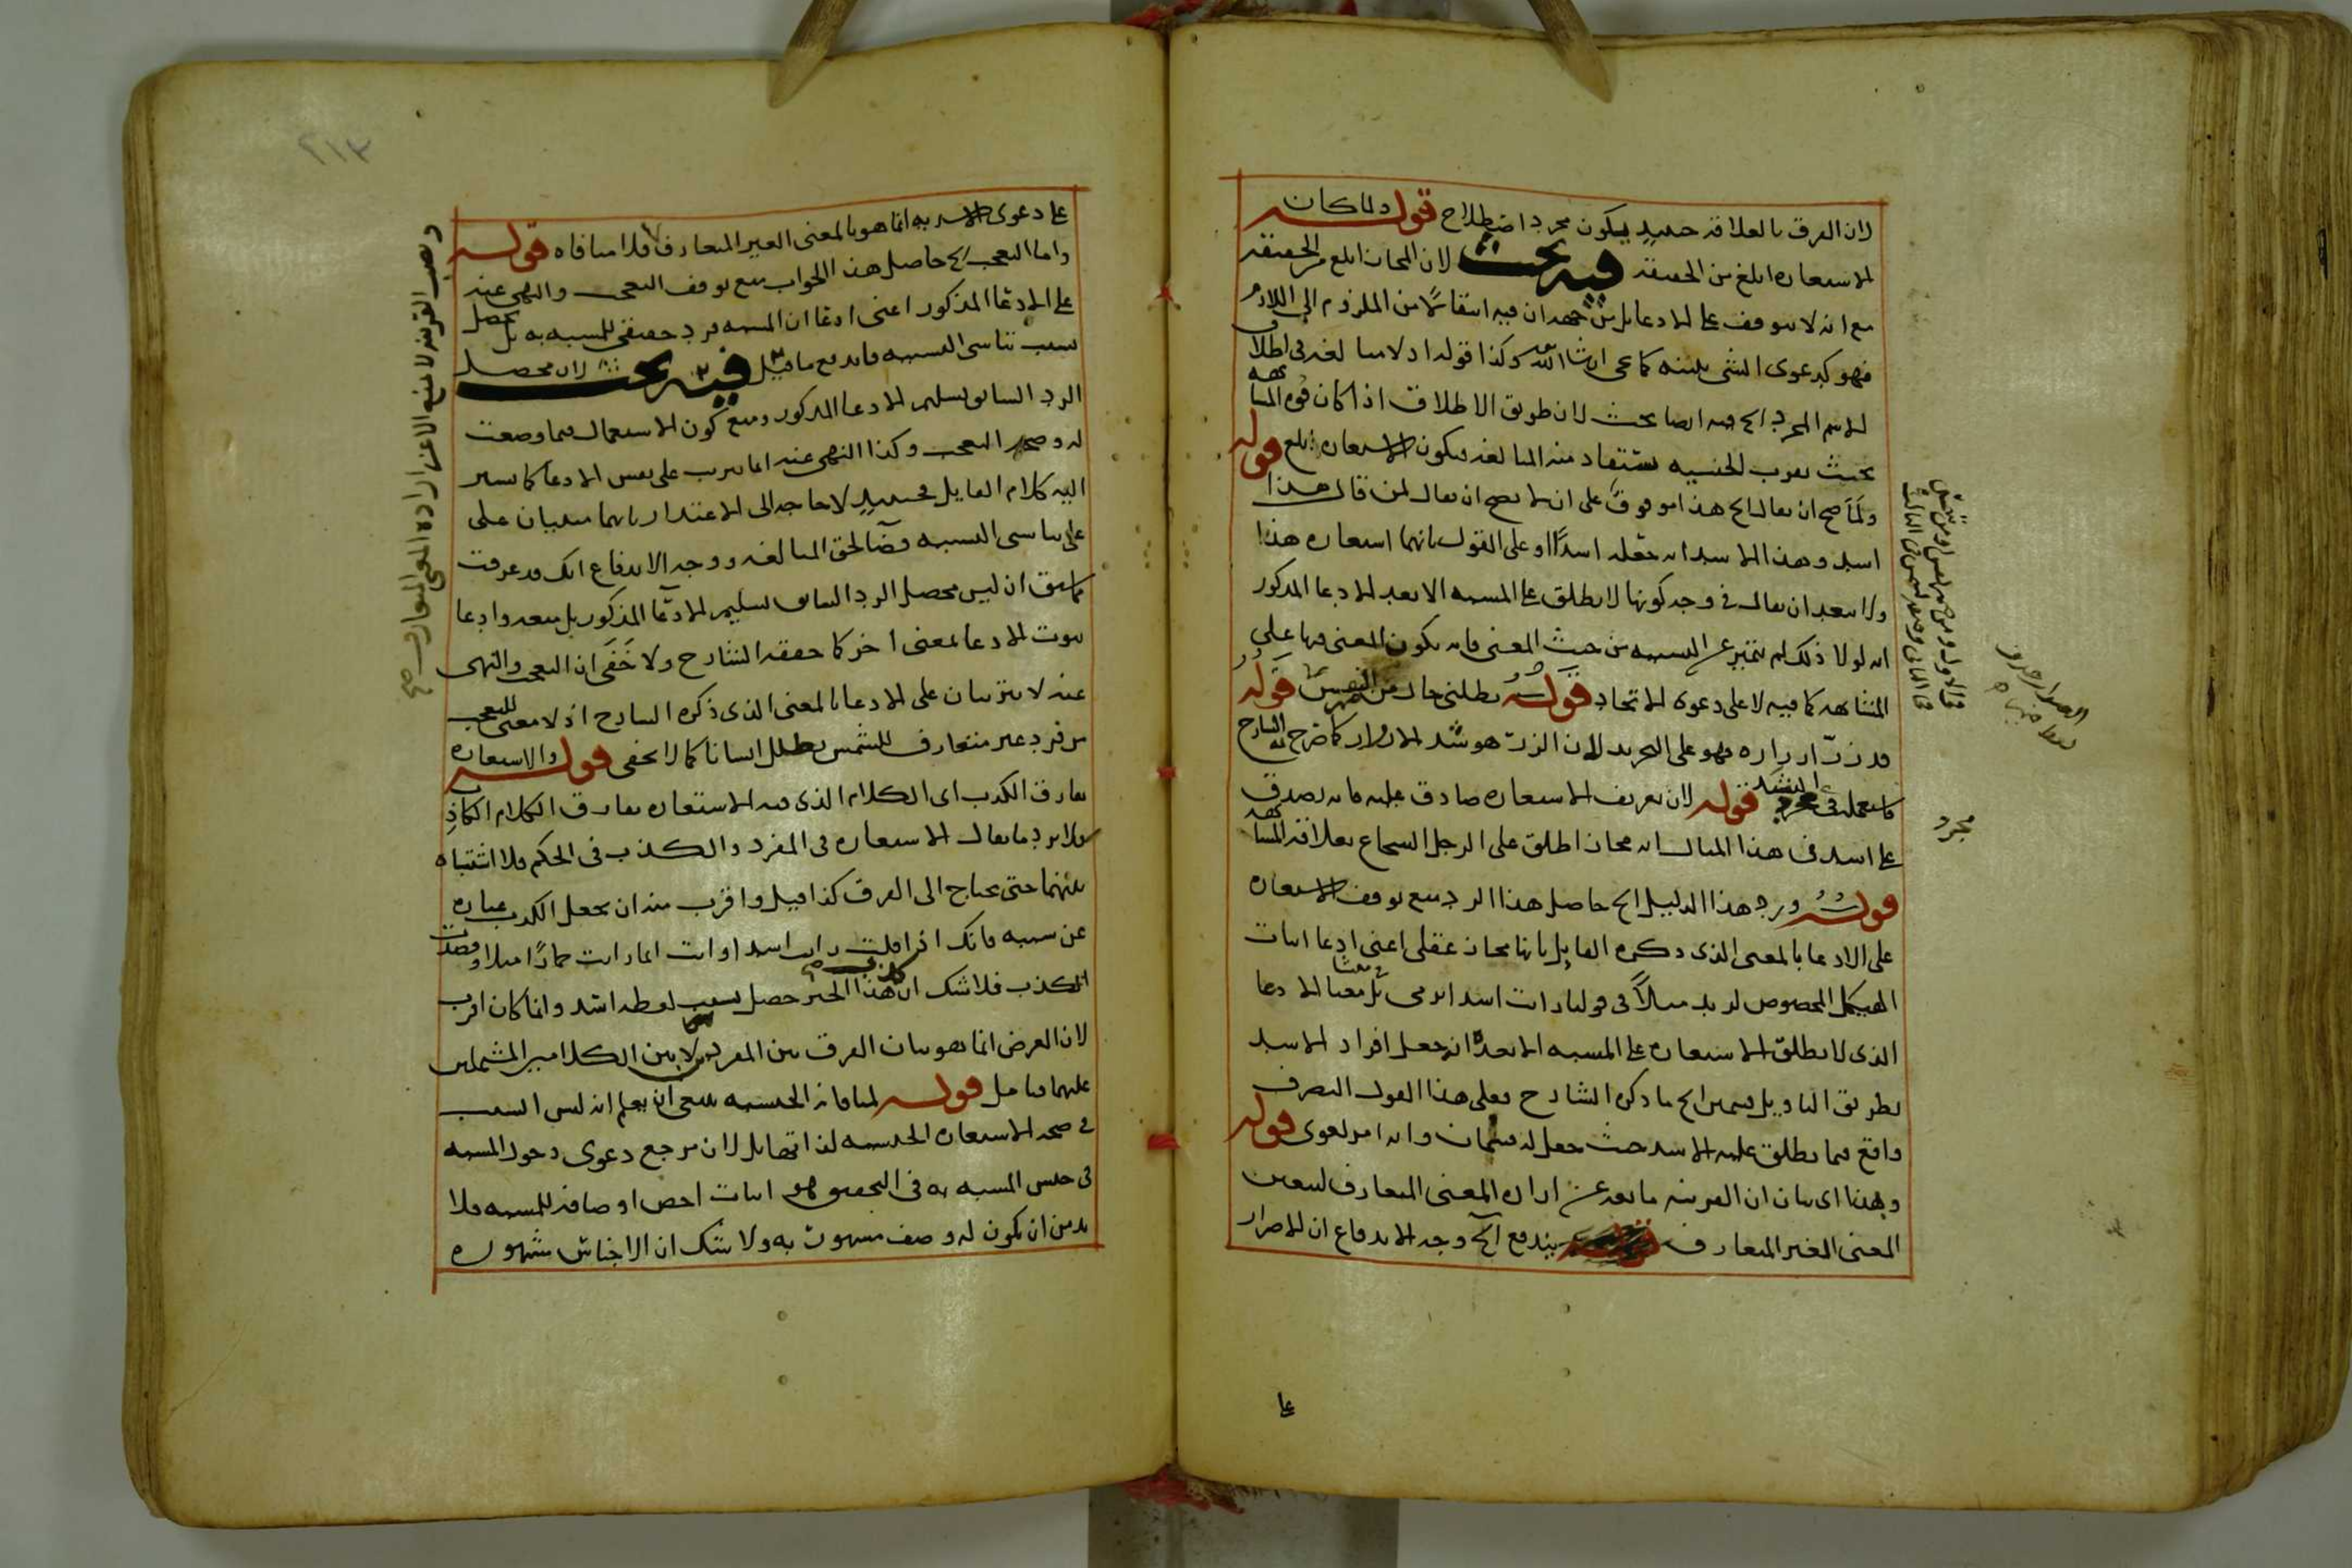 لان الفرق بالعلاقة حينئذ يكون مجرد اصطلاح قوله ولما كان
الاستعارة ابلغ من الحقيقة فيه بحث لان المجاز ابلغ من الحقيقة
مع انه لا يتوقف على الادعاء بل من جهة ان فيه انتقالا من الملزوم الى اللازم
فهو كدعوى الشئ ببينة كما يجى ان شا الله وكذا قوله اذ لا مبالغة فى اطلاق
الاسم المجرد الخ فيه ايضا بحث لان طريق الاطلاق اذا كان قوة المشابهة
بحيث يقرب الجنسية يستفاد منه المبالغة فيكون الاستعارة ابلغ قوله
ولما صح ان يقال الخ هذا موقوف على ان لا يصح ان يقال لمن قال هذا
اسد وهذا الاسد انه جعله اسدا او على القول بانهما استعارة هذا
ولا يبعد ان يقال فى وجه كونها لا يطلق على المشبه الا بعد الادعا المذكور
انه لولا ذلك لم يتميز عن التشبيه من حيث المعنى فانه يكون المعنى فيها على
المشابهة كما فيه لا على دعوة الاتحاد قوله تظللنى حال من النفس قوله
قد زر ازراره فهو على التجريد لان الزر هو شد الازرار كما صرح به الشارح
فاستعمله فى الشد مجرد قوله لان تعريف الاستعارة صادق عليه فانه يصدق
على اسد فى هذا المثال انه مجاز اطلق على الرجل الشجاع بعلاقة المشابهة
قوله ورد هذا الدليل الخ حاصل هذا الرد منع توقف الاستعارة
على الادعا بالمعنى الذى ذكره القايل بانها مجاز عقلى اعنى ادعا اثبات
الهيكل المخصوص لزيد مثلا فى قولنا رايت اسدا يرمى بل معنا الادعا
الذى لا يطلق الاستعارة على المشبه الا بعده انه جعل افراد الاسد
بطريق التاويل قسمين الخ ما ذكره الشارح فعلى هذا القول التصرف
واقع فيما يطلق عليه الاسد حيث جعل له قسمان وانه امر لغوى قوله
وبهذا اى بيان ان القرينة مانعة عن ارادة المعنى المتعارف ليتعين
المعنى الغير المتعارف يندفع الخ وجه الاندفاع ان الاصرار
مجرد
على
٢١٣
على دعوى الاسدية انما هو بالمعنى الغير المتعارف فلا منافاه قوله
واما التعجب الخ حاصل هذا الجواب منع توقف التعجب والنهى عنه
على الادعا المذكور اعنى ادعا ان المشبه فرد حقيقى للمشبه به بل يحصل
بسبب تناسى التشبيه فاندفع ما قيل فيه بحث لان محصل
الرد السابق تسليم الادعا المذكور ومنع كون الاستعمال فيما وضعت
له وصحة التعجب وكذا النهى عنه انما يترتب على نفس الادعا كما يشير
اليه كلام القايل فحينئذ لا حاجة الى الاعتذار بانهما مبنيان على
على تناسى التشبيه قضا لحق المبالغة ووجه الاندفاع انك قد عرفت
ما سبق ان ليس محصل الرد السابق تسليم الادعا المذكور بل منعه وادعا
ثبوت الادعا بمعنى اخر كما حققه الشارح ولا خفى ان التعجب والنهى
عنه لا يترتبان على الادعا بالمعنى الذى ذكره الشارح اذ لا معنى للتعجب
من فرد غير متعارف للشمس يظلل انسانا كما لا يخفى قوله والاستعارة
تفارق الكذب اى الكلام الذى فيه الاستعارة تفارق الكلام الكاذب
فلا يرد ما يقال الاستعارة فى المفرد والكذب فى الحكم فلا اشتباه
بينهما حتى يحتاج الى الفرق كذا قيل واقرب منه ان يجعل الكذب عبارة
عن سببه فانك اذا قلت رايت اسدا وانت انما رايت حمارا مثلا وقصدت
الكذب فلا شك ان كذب هذا الخبر حصل بسبب لفظة اسد وانما كان اقرب
لان الغرض انما هو بيان الفرق بين المفردين لا بين الكلامين المشتملين
عليهما فتامل قوله لمنافاته الجنسية ينبغى ان يعلم انه ليس السبب
فى صحة الاستعارة الجنسية لذاتها بل لان مرجع دعوى دخول المشبه
فى جنس المشبه به فى التحقيق هو اثبات اخص اوصافه للمشبه فلا
بد من ان يكون له وصف مشهور به ولا شك ان الاجناس مشهورة
ونصب القرينة لا يمنع الا عن ارادة المعنى المتعارف صح